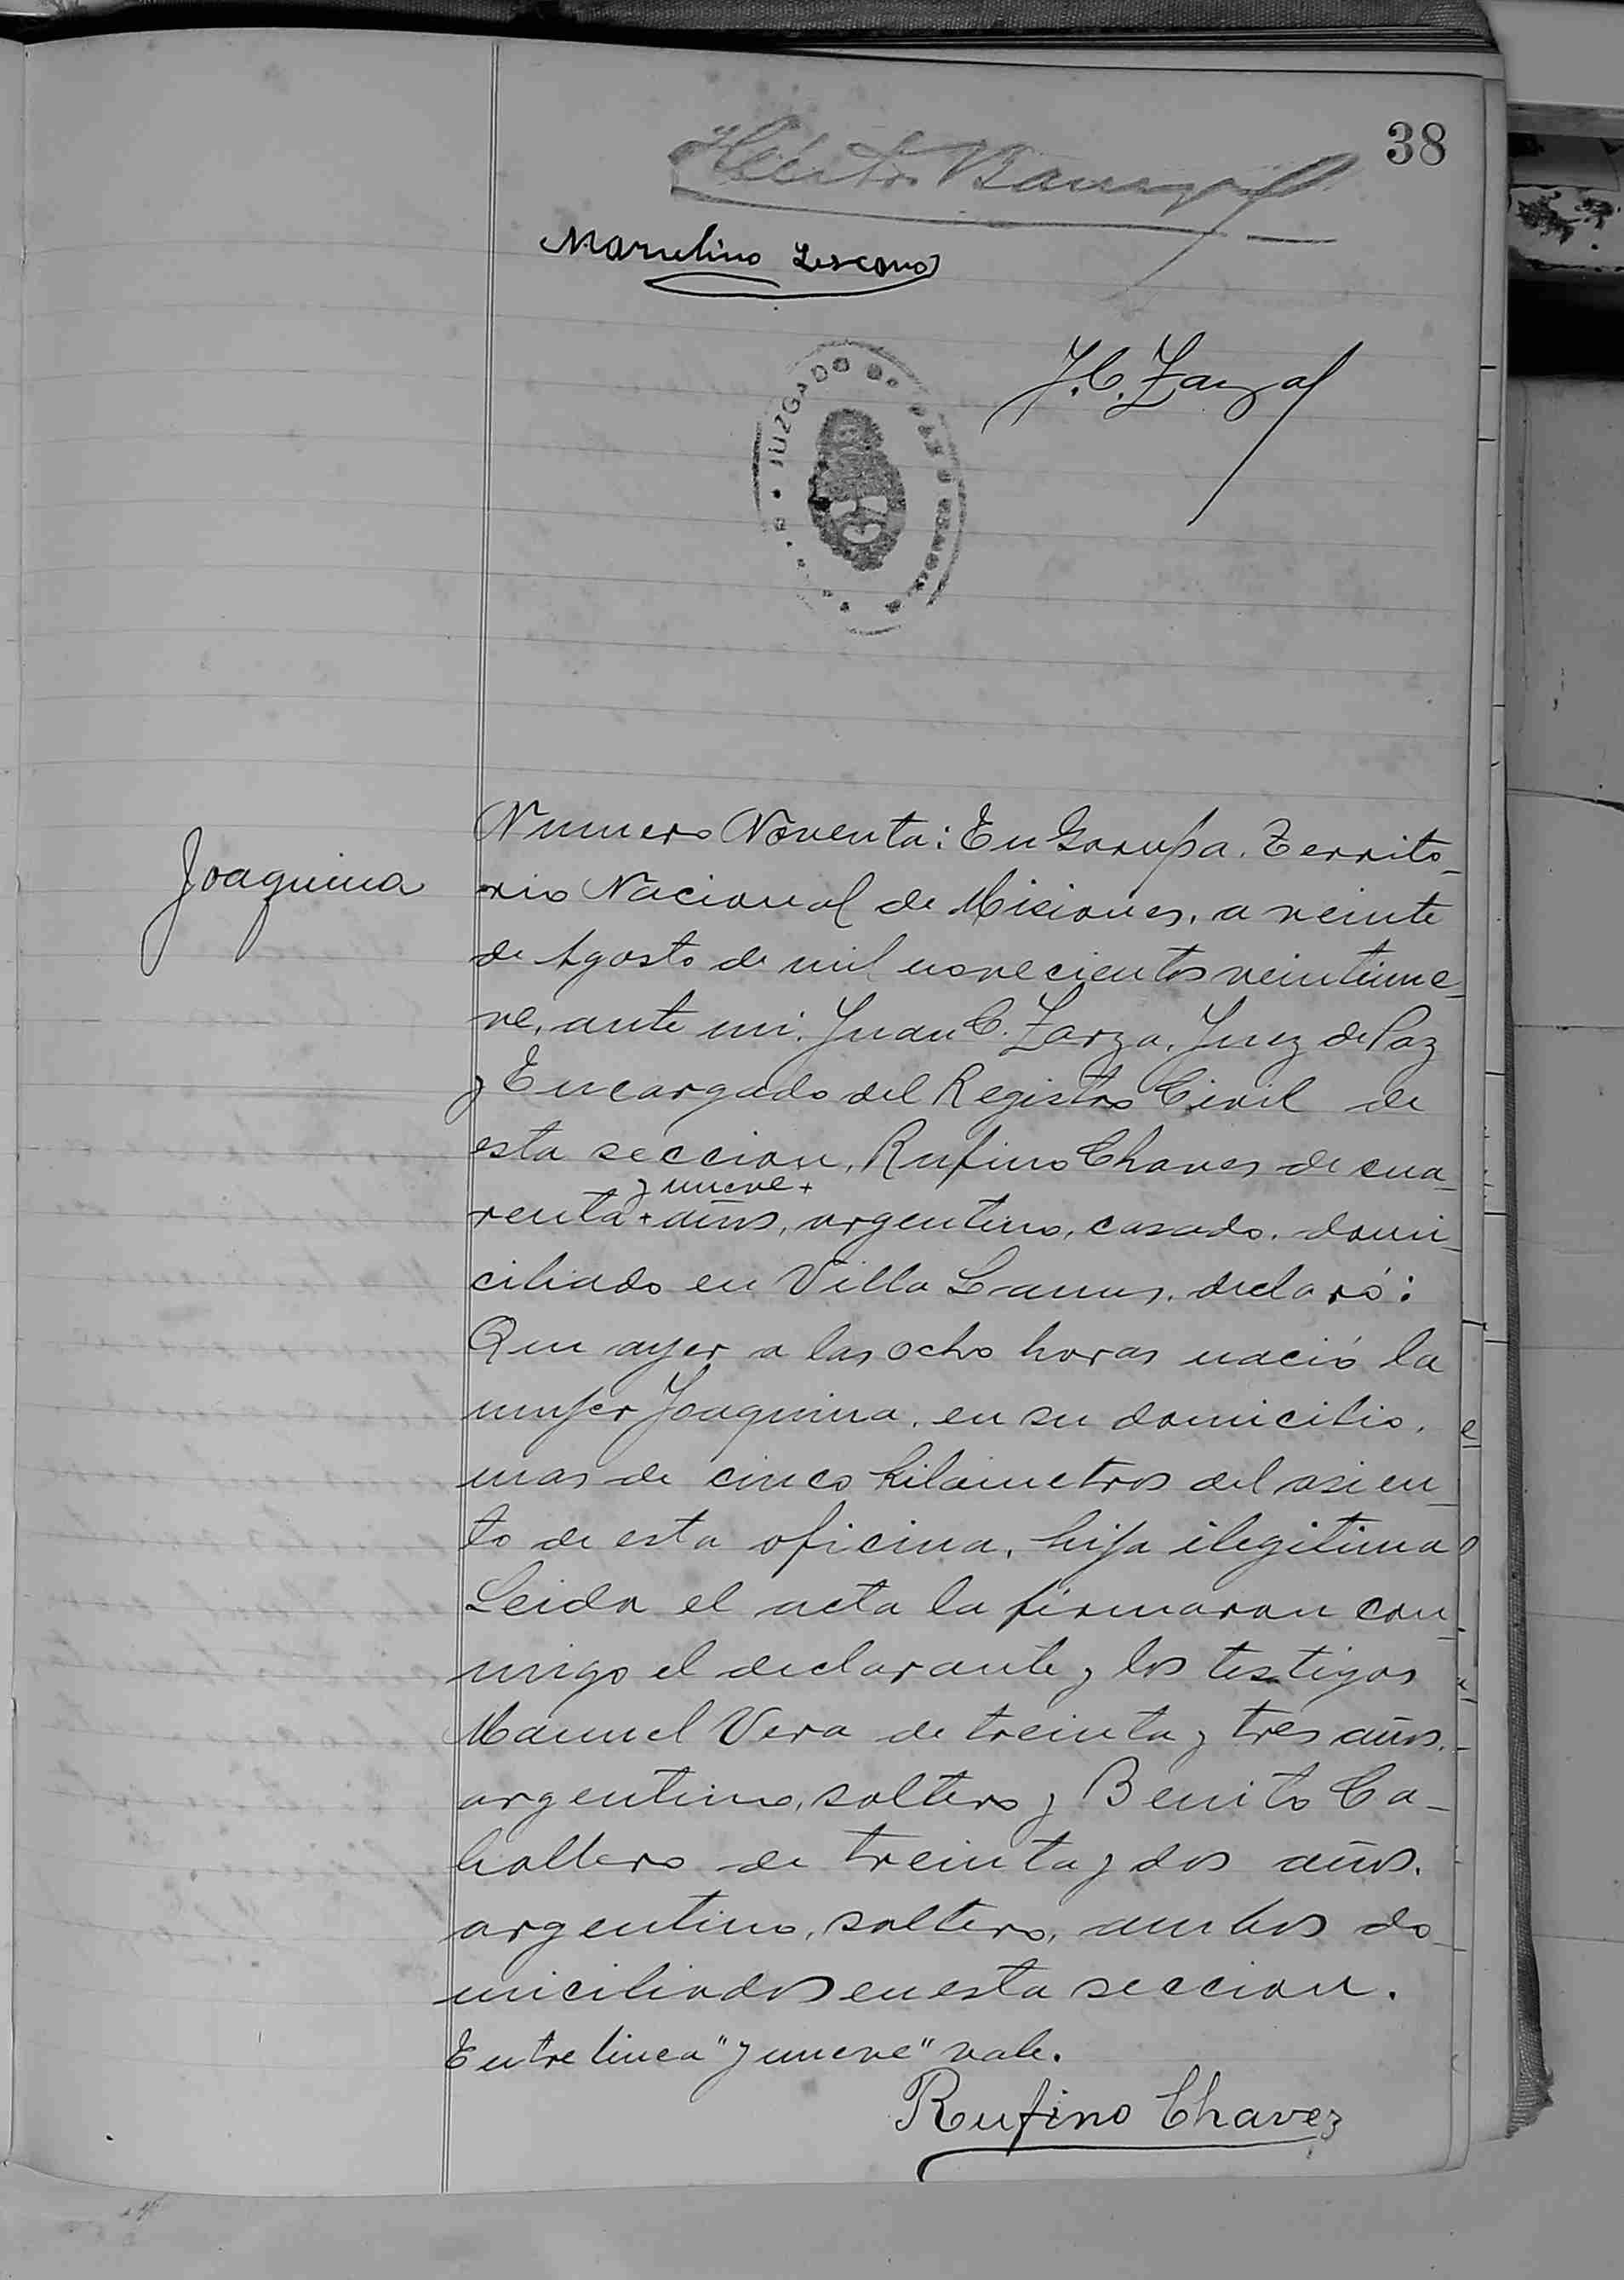 38
Marcelino Lescano
J. C. Zarza
JUZGADO DE PAZ
Joaquina
Numero Noventa: En Garupa. Territo_
rio Nacional de Misiones. a veinte
de Agosto de mil novecientos veintinue_
ve, ante mi. Juan C. Zarza. Juez de Paz
y Encargado del Registro Civil de
esta seccion, Rufino Chaves de cua_
y nueve +
renta + años, argentino, casado. domi_
ciliado en Villa Lanus. declaró:
Que ayer a las ocho horas nació la
mujer Joaquina. en su domicilio.
mas de cinco kilometros del asien_
to de esta oficina, hija ilegitima
Leida el acta la firmaron con_
migo el declarante y los testigos
Manuel Vera de treinta y tres años.
argentino, soltero y Benito Ca_
ballero de treinta y dos años.
argentino, soltero, ambos do_
miciliados en esta seccion.
Entre linea "y nueve" vale.
Rufino Chavez